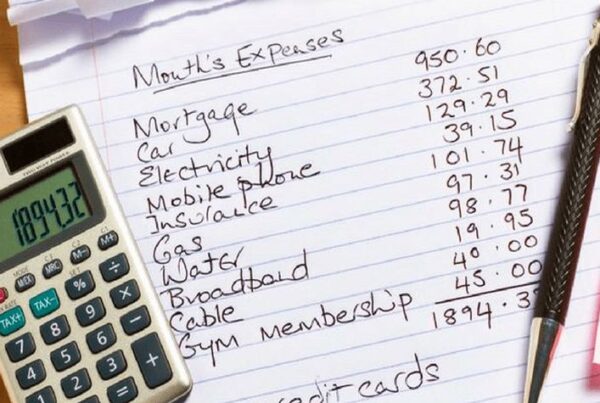 Month's Expenses
Mortgage 950.60
Car 372.51
Electricity 129.29
Mobile phone 39.15
Insurance 101.74
Gas 97.31
Water 98.77
Broadband 19.95
Cable 40.00
Gym membership 45.00
1894.3
credit cards
1894.32
MRC M- M+
% ÷
TAX+ TAX-
7 8 9 ×
4 5 6
2 3 = +